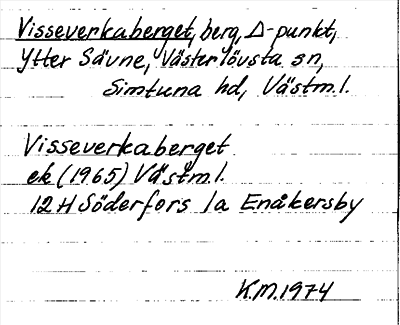 Visseverkaberget, berg, Δ-punkt,
Ytter Sävne, Västerlövsta sn,
Simtuna hd, Västm.l.
Visseverkaberget
ek (1965) Västm.l.
12 H Söderfors 1a Enåkersby
K.M.1974